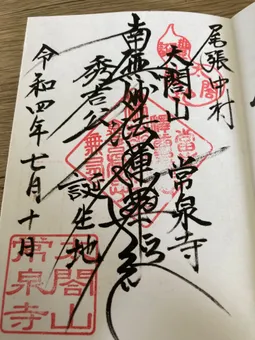 尾張中村
太閤山 常泉寺
南無妙法蓮華経
秀吉公 誕生地
令和四年七月十日
太閤山
常泉寺